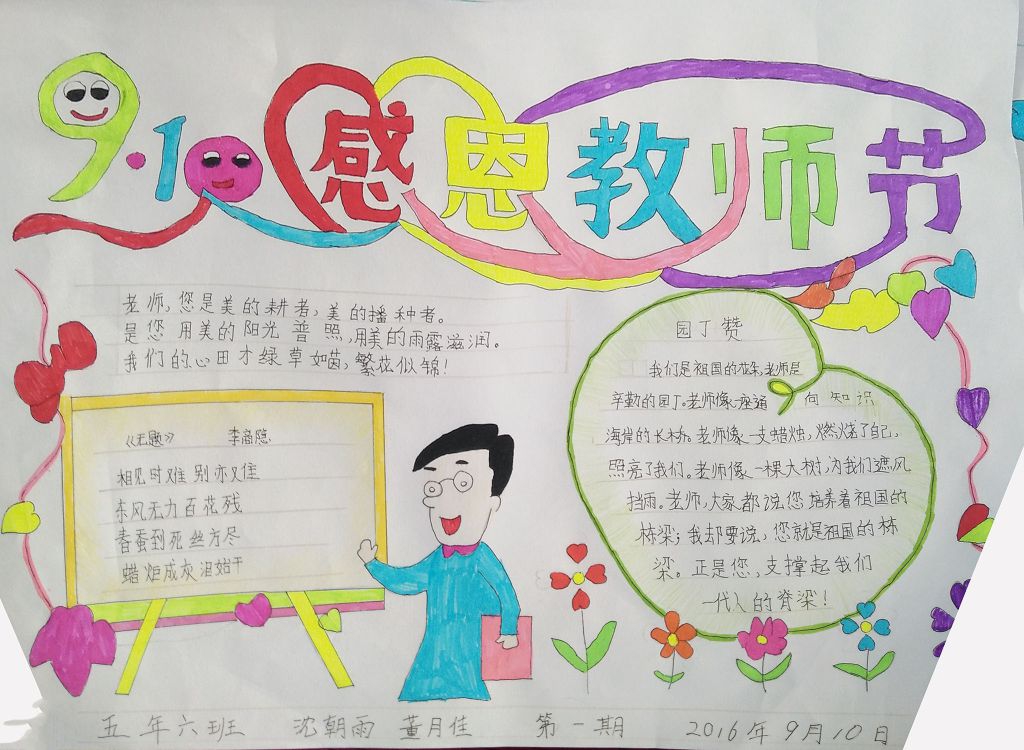 9·10 感恩教师节
老师,您是美的耕者,美的播种者。
是您用美的阳光普照,用美的雨露滋润。
我们的心田才绿草如茵,繁花似锦!
《无题》 李商隐
相见时难别亦难
东风无力百花残
春蚕到死丝方尽
蜡炬成灰泪始干
园丁赞
我们是祖国的花朵,老师是
辛勤的园丁。老师像一座通向知识
海岸的长桥。老师像一支蜡烛,燃烧了自己,
照亮了我们。老师像一棵大树,为我们遮风
挡雨。老师,大家都说,您培养着祖国的
栋梁;我却要说,您就是祖国的栋
梁。正是您,支撑起我们
一代人的脊梁!
五年六班 沈朝雨 董月佳 第一期 2016年9月10日